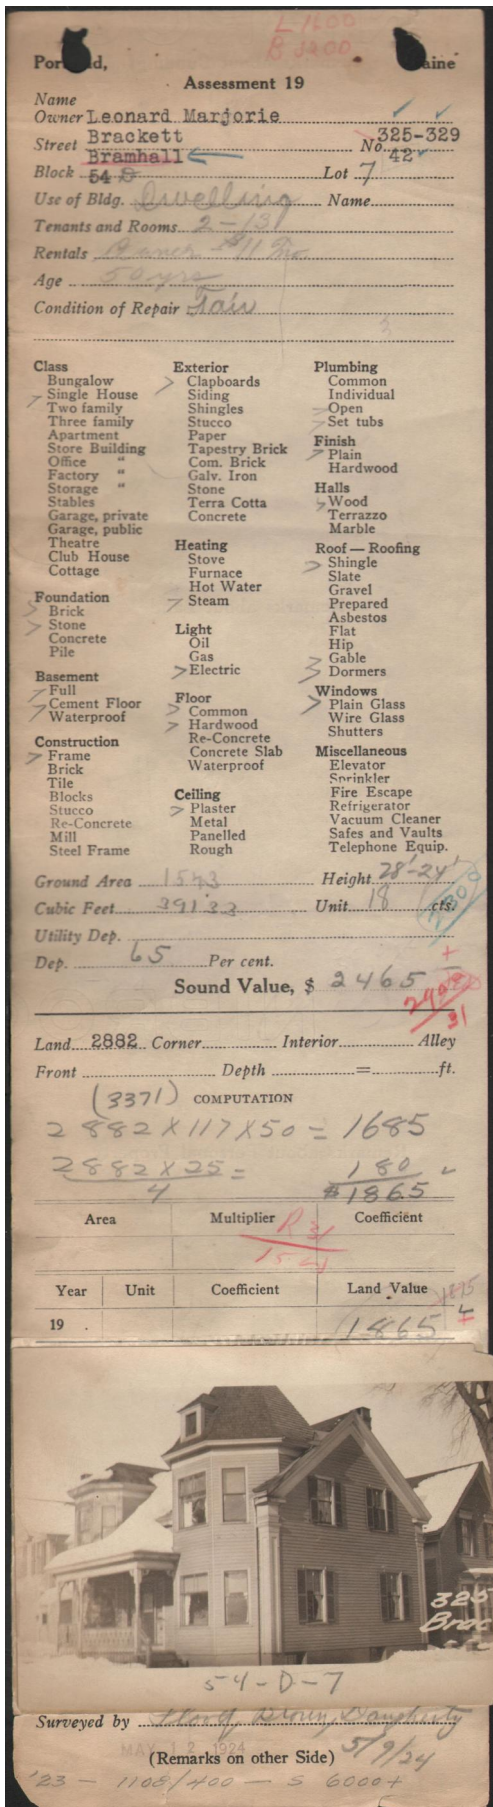 L-1600
B 3200
Portland, Maine
Assessment 19
Name
Owner Leonard Marjorie
Street Brackett No. 325-329
Bramhall 42
Block 54 D Lot 7
Use of Bldg. Dwelling Name
Tenants and Rooms 2-13
Rentals Owner $11 Mo.
Age 50 yrs
Condition of Repair Fair
3
Class
Bungalow
Single House
Two family
Three family
Apartment
Store Building
Office "
Factory "
Storage "
Stables
Garage, private
Garage, public
Theatre
Club House
Cottage
Foundation
Brick
Stone
Concrete
Pile
Basement
Full
Cement Floor
Waterproof
Construction
Frame
Brick
Tile
Blocks
Stucco
Re-Concrete
Mill
Steel Frame
Exterior
Clapboards
Siding
Shingles
Stucco
Paper
Tapestry Brick
Com. Brick
Galv. Iron
Stone
Terra Cotta
Concrete
Heating
Stove
Furnace
Hot Water
Steam
Light
Oil
Gas
Electric
Floor
Common
Hardwood
Re-Concrete
Concrete Slab
Waterproof
Ceiling
Plaster
Metal
Panelled
Rough
Plumbing
Common
Individual
Open
Set tubs
Finish
Plain
Hardwood
Halls
Wood
Terrazzo
Marble
Roof — Roofing
Shingle
Slate
Gravel
Prepared
Asbestos
Flat
Hip
Gable
Dormers
Windows
Plain Glass
Wire Glass
Shutters
Miscellaneous
Elevator
Sprinkler
Fire Escape
Refrigerator
Vacuum Cleaner
Safes and Vaults
Telephone Equip.
Ground Area 1543 Height 28'-24'
Cubic Feet 39133 Unit 18 cts.
Utility Dep.
Dep. 65 Per cent.
Sound Value, $ 2465
31
Land 2882 Corner Interior Alley
Front Depth = ft.
(3371) COMPUTATION
2882 X 117 X 50 = 1685
2882 X 25 = 180
4 $1865
Area Multiplier Coefficient
R 31
Year Unit Coefficient Land Value
1875
19 . 1865
325
Brac
54-D-7
Surveyed by Dougherty
MAY 12 1924 5/9/24
(Remarks on other Side)
'23 - 1108/400 - S 6000+